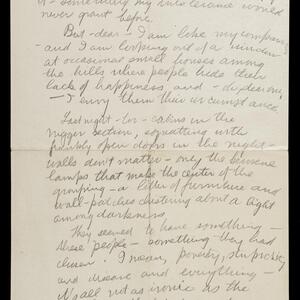 of - something my intolerance would
never grant before.
But - dear - I am like my company
- and I am looking out of a window
at occasional small houses among
the hills where people hide their
lack of happiness, and - dear one,
- I envy them their circumstance.
Last night - the cabins in the
nigger section, squatting with
frankly open doors in the night -
walls don't matter - only the kerosene
lamps that make the center of the
grouping - a litter of furniture and
wall-patches clustering about a light
among darkness.
They seemed to have something -
these people - something they had
chosen. I mean, poverty, stupidity
and disease and everything -
all not as ironic as the